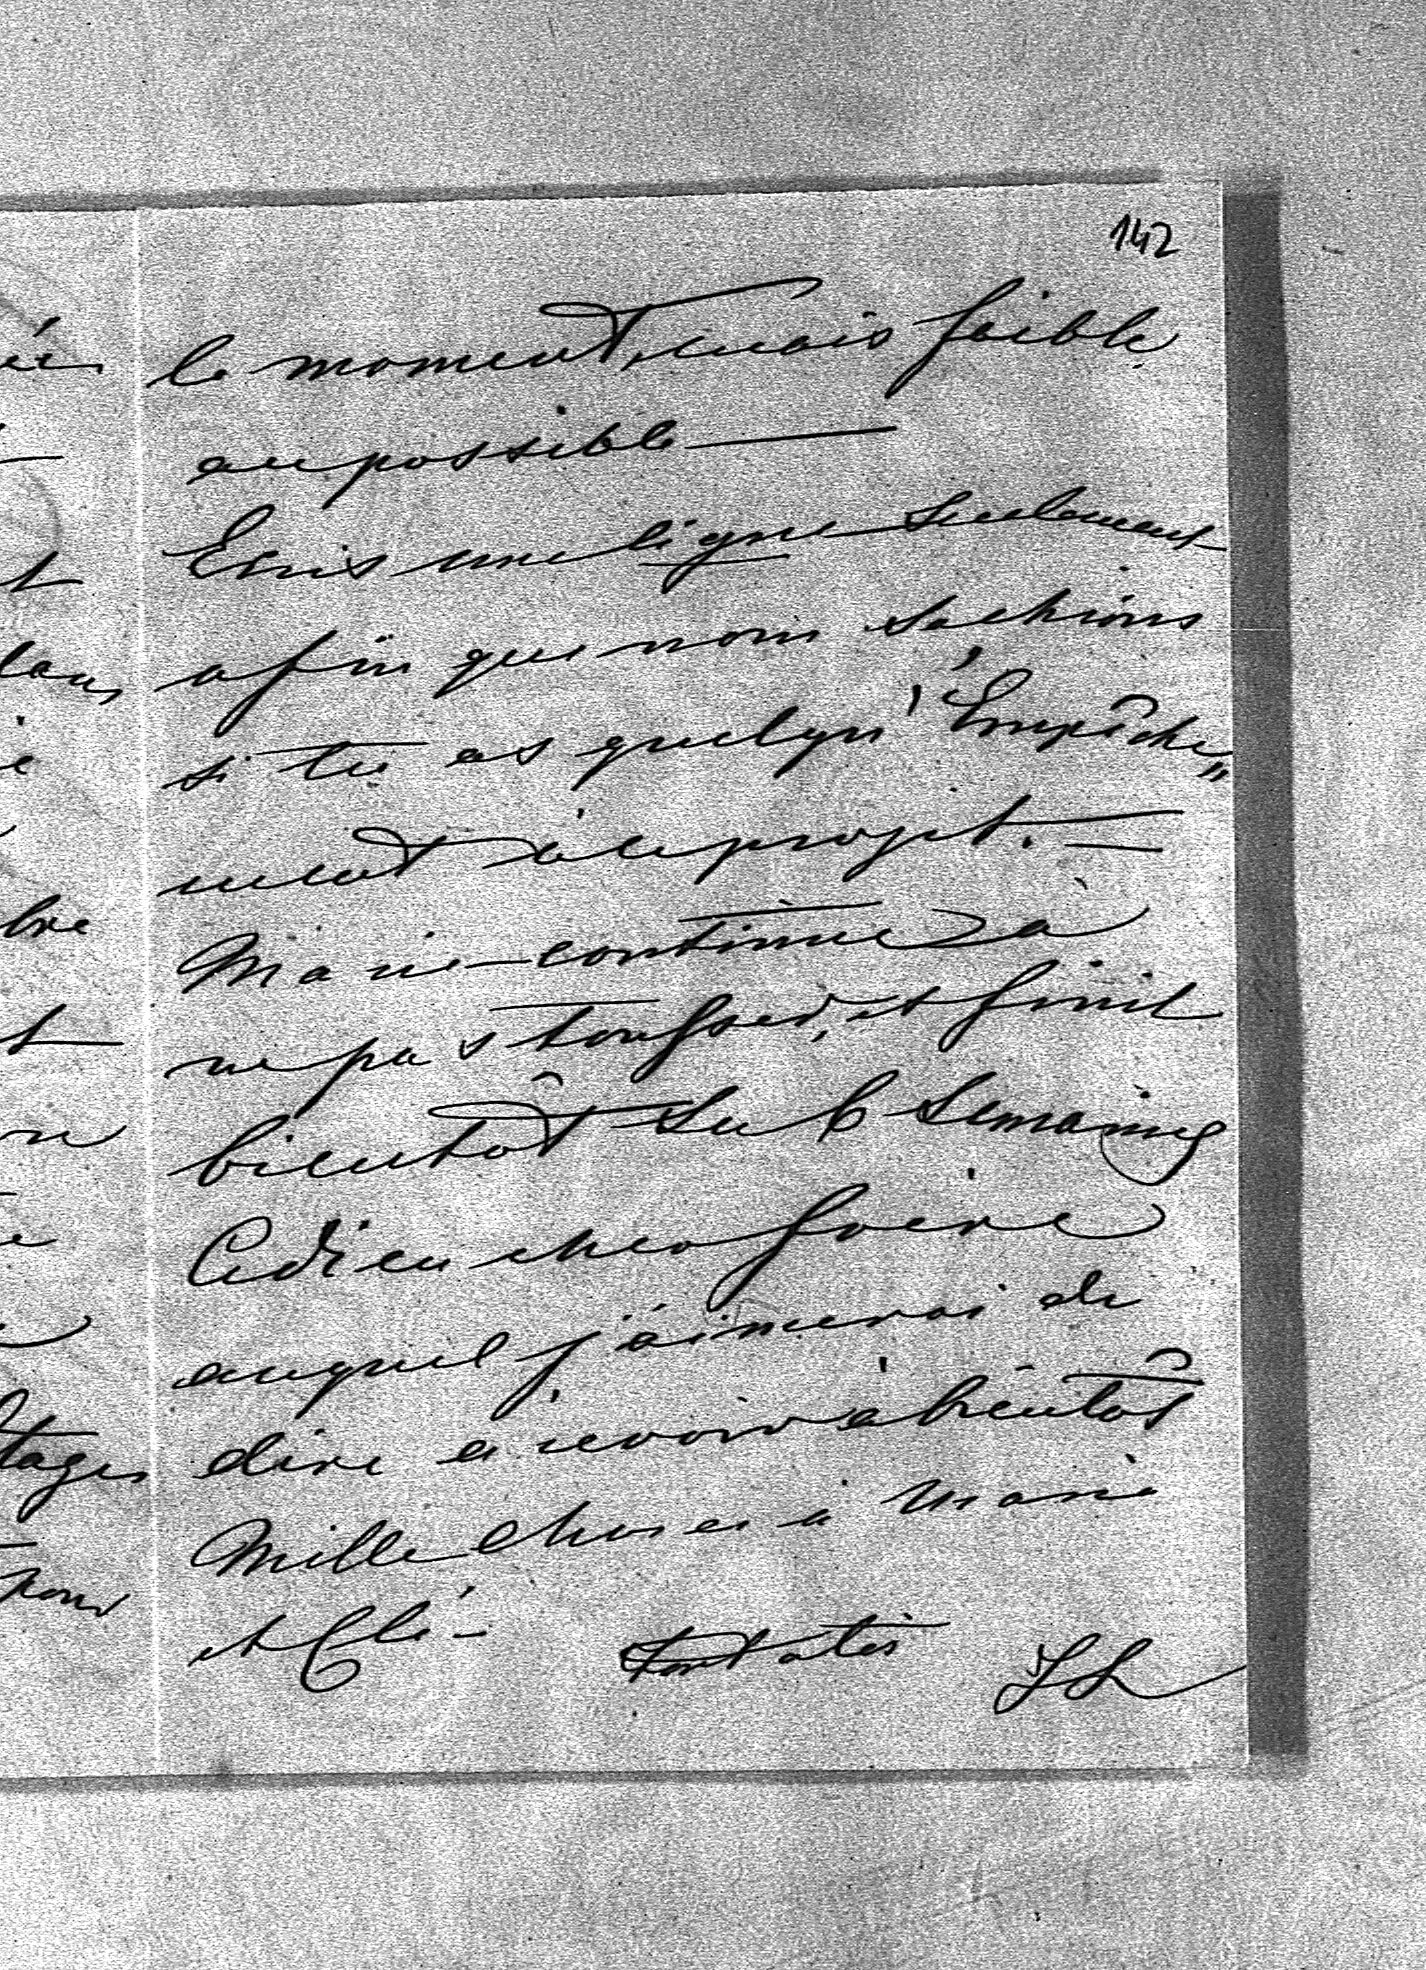 142
le moment, mais faible
au possible
Ecris une ligne seulement
afin que nous sachions
si tu as quelqu' Empêche„
ment à ce projet. —
Marie continue à
ne pas tousser, et finit
bientôt sa 6 semaines
Adieu cher frère
auquel j'aimerai de
dire à revoir à bientôt
Mille choses à Marie
et Clé -